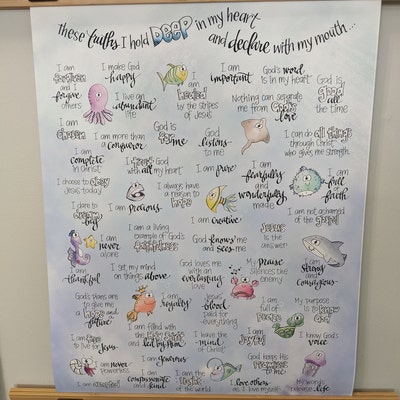 these truths I hold DEEP in my heart
and declare with my mouth...
I am
forgiven
and I
forgive
others
I make God
happy
I am
healed
by the stripes
of Jesus
I am
important
God's word
is in my heart
God is
good
all
the time
I live an
abundant
life
Nothing can separate
me from God's
love
I am
chosen
I am more than
a conqueror
God is
for me
God
listens
to me
I can do all things
through Christ
who gives me strength
I am
complete
in Christ
I trust God
with all my heart
I am pure
I am
fearfully
and
wonderfully
made
I am
full
of
faith
I choose to obey
Jesus today
I always have
a reason to
hope
I dare to
dream
big
I am precious
I am creative
I am not ashamed
of the gospel
I am
never
alone
I am a living
example of God's
faithfulness
God knows me
and sees me
Jesus
is the
answer
I am
thankful
I set my mind
on things above
God loves me
with an
everlasting
love
My praise
silences the
enemy
I am
strong
and
courageous
God's plans are
to give me
a hope and
future
I am
royalty
Jesus'
blood
paid for
everything
I am
full of
My purpose
is to know
God
I am
to live for
Jesus
I am filled with
the Holy Spirit
and led by Him
I have the
mind of
Christ
I am
joyful
I know God's
voice
I am never
powerless
I am generous
God keeps His
promises
to me
I am
I am
compassionate
and kind
I am the
light
of the world
I love others
as I love myself
My words
release life